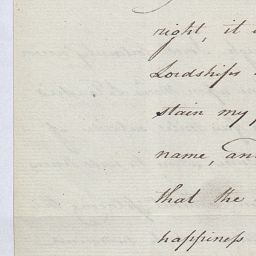 right, it
Lordships
stain my
name, an
that the
happiness